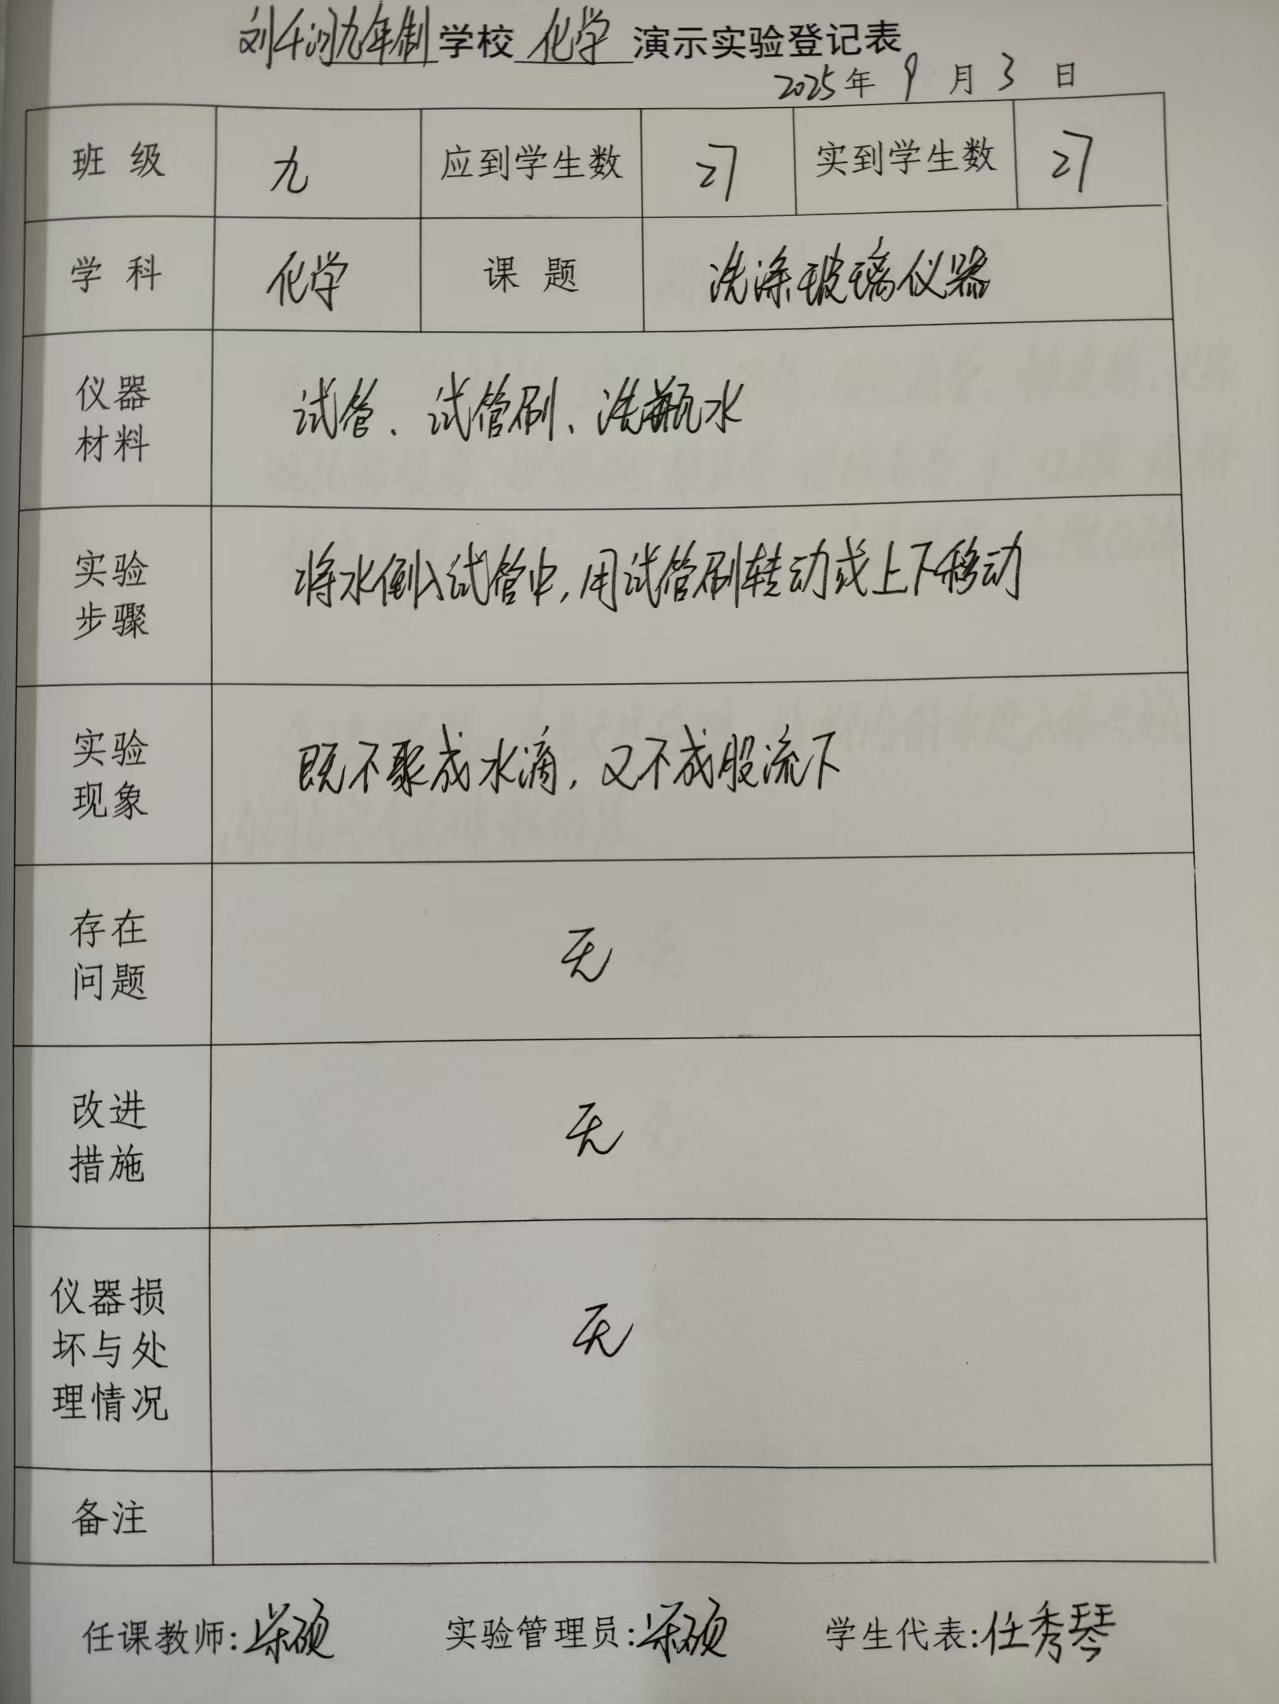 刘千河九年制学校 化学 演示实验登记表
2025年 9 月 3 日
班 级 九 应到学生数 27 实到学生数 27
学 科 化学 课 题 洗涤玻璃仪器
仪器
材料
试管、试管刷、洗瓶水
实验
步骤
将水倒入试管中,用试管刷转动或上下移动
实验
现象
既不聚成水滴,又不成股流下
存在
问题
无
改进
措施
无
仪器损
坏与处
理情况
无
备注
任课教师: 硕 实验管理员: 硕 学生代表:任秀琴